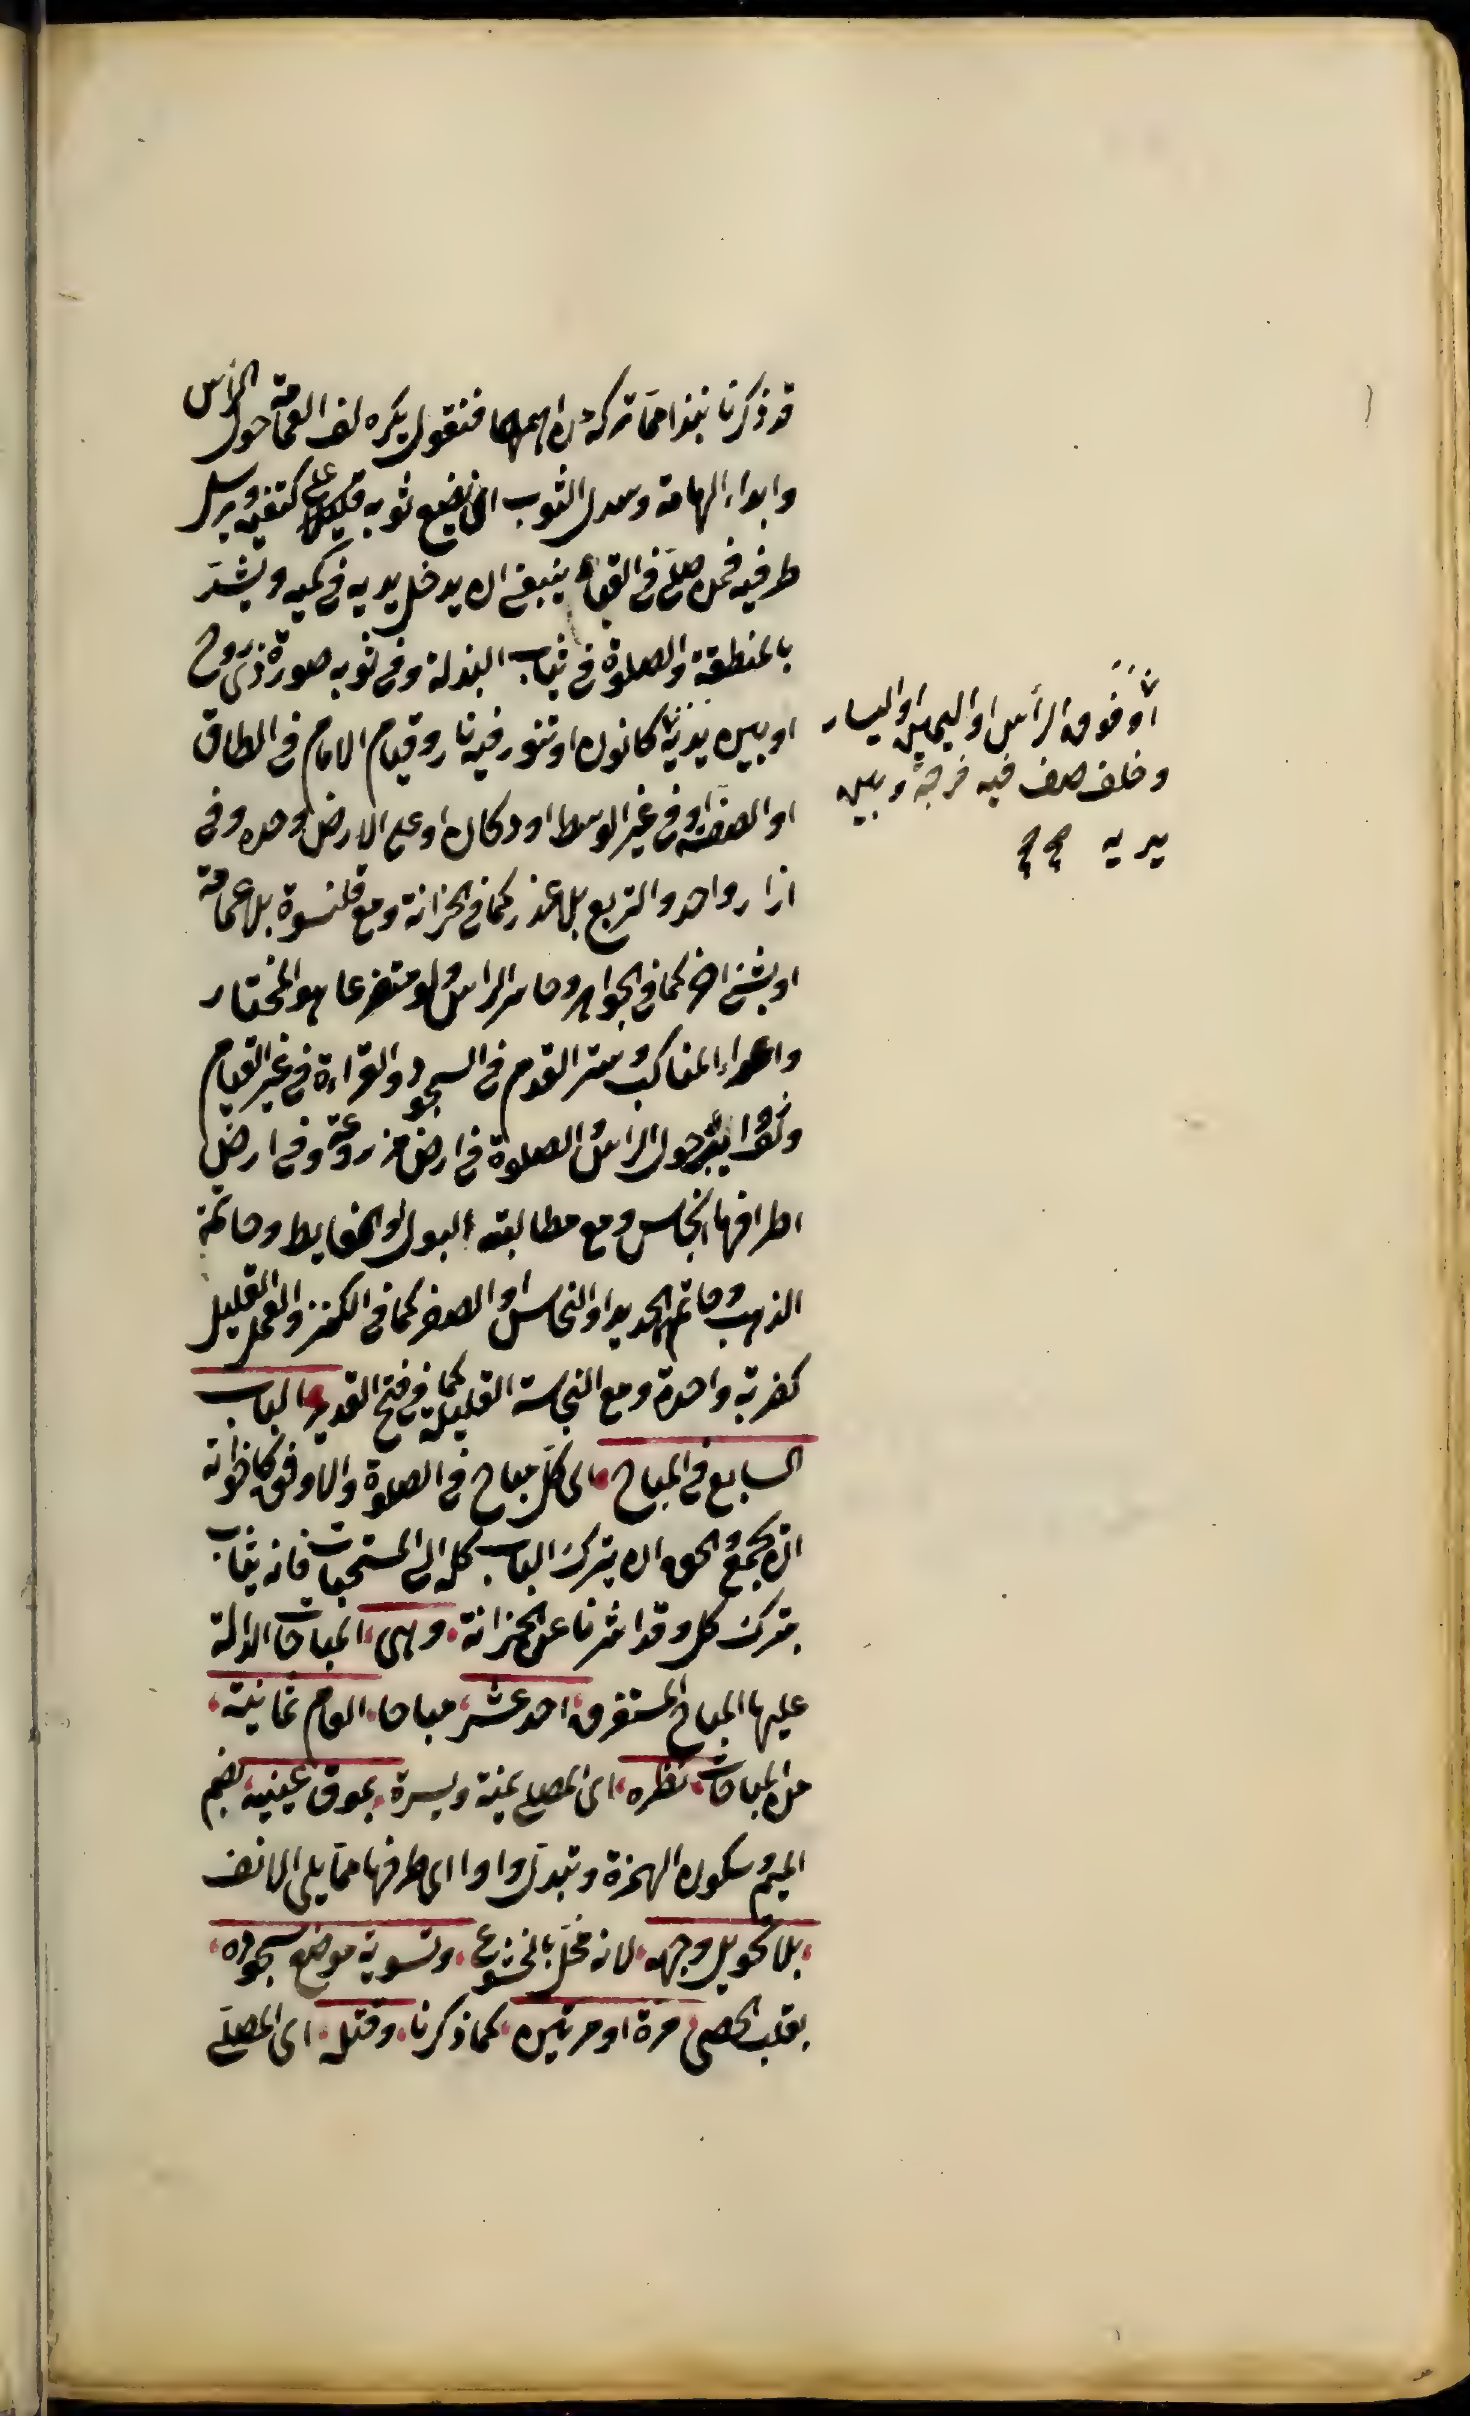 قد ذكرنا نبذا مما تركه فنقول يكره لف العمامة حول الرأس
وابداء الهامة وسدل الثوب اى يضع ثوبه على كتفيه ويرسل
طرفيه فمن صلى فى القباء ينبغى ان يدخل يديه فى كميه ويشد
بالمنطقة والصلوة فى ثياب البذلة وفى ثوبه صورة ذى روح
او بين يديه كانون او تنور فيه نار وقيام الامام فى الطاق
او الصفة او فى غير الوسط او دكان او على الارض وحده وفى
ازار واحد والتربع بلا عذر كما فى الخزانة ومع قلنسوة بلا عمامة
او بشئ اخر كما فى الجواهر وحاسر الراس ولو متضرعا هو المختار
واعراء المناكب وستر القدم فى السجود والقراءة فى غير القيام
حول الراس والصلوة فى ارض مزروعة وفى ارض
اطرافها انجاس ومع مطالبته البول والغايط وخاتمة
الذهب وخاتم الحديد او النحاس او الصفر كما فى الكنز والعمل القليل
كضربة واحدة ومع النجاسة القليلة كما فى فتح القدير الباب
السابع فى المباح اى كل مباح فى الصلوة والاوفق كاخواته
ان يجمع والحق ان يترك الباب كله الى المستحبات فانه يثاب
بترك كل وقد اشرنا عن الخزانة وهى المباحات الدالة
عليها المباح المستغرق احد عشر مباحا العام ثمانية
من المباحات نظره اى المصلى يمنة ويسرة بموق عينيه بضم
الميم وسكون الهمزة وتبدل واوا اى طرفها مما يلى الانف
بلا تحويل وجهه لانه مخل بالخشوع وتسوية موضع سجوده
بقلب الحصى مرة او مرتين كما ذكرنا وقتله اى المصلى
او فوق الرأس او اليمين او اليسار
وخلف صف فيه فرجة وبين
يديه